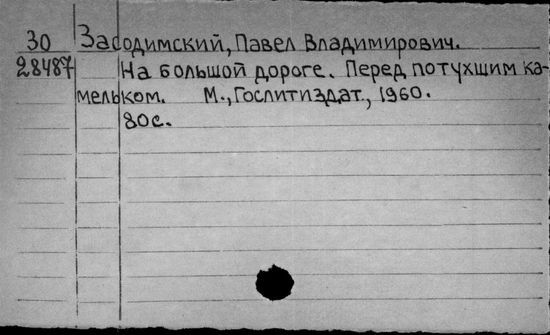 30 Засодимский, Павел Владимирович.
28487 На большой дороге. Перед потухшим ка-
мельком. М., Гослитиздат., 1960.
80с.